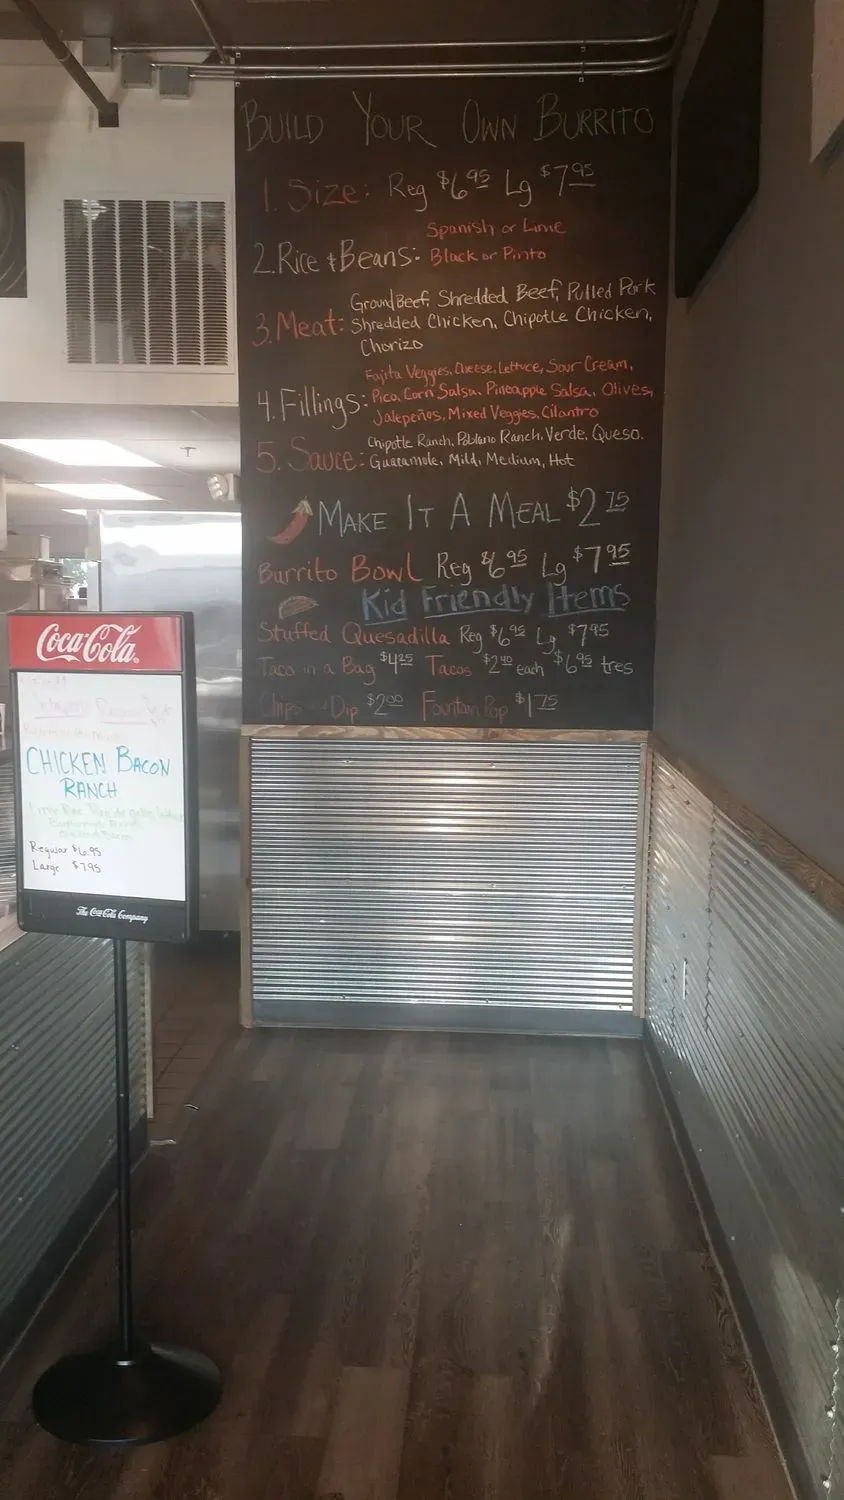 BUILD YOUR OWN BURRITO
1. Size: Reg $6.95 Lg $7.95
Spanish or Lime
2. Rice & Beans: Black or Pinto
Ground Beef, Shredded Beef, Pulled Pork
3. Meat: Shredded Chicken, Chipotle Chicken,
Chorizo
Fajita Veggies, Cheese, Lettuce, Sour Cream,
4. Fillings: Pico, Corn Salsa, Pineapple Salsa, Olives,
Jalepeños, Mixed Veggies, Cilantro
Chipotle Ranch, Poblano Ranch, Verde, Queso,
5. Sauce: Guacamole, Mild, Medium, Hot
MAKE IT A MEAL $2.75
Burrito Bowl Reg $6.95 Lg $7.95
Kid Friendly Items
Stuffed Quesadilla Reg $6.95 Lg $7.95
Taco in a Bag $4.25 Tacos $2.40 each $6.95 tres
Chips and Dip $2.00 Fountain Pop $1.75
Coca-Cola
CHICKEN BACON
RANCH
Regular $6.95
Large $7.95
The Coca-Cola Company